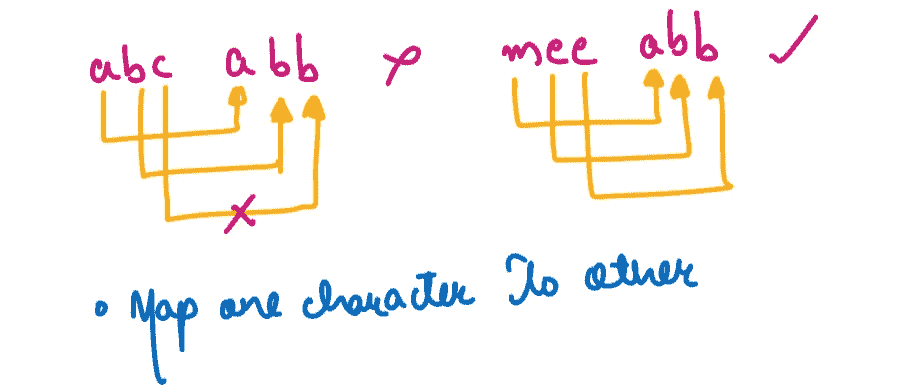 abc abb ✗ mee abb ✓
✗
• Map one character To other